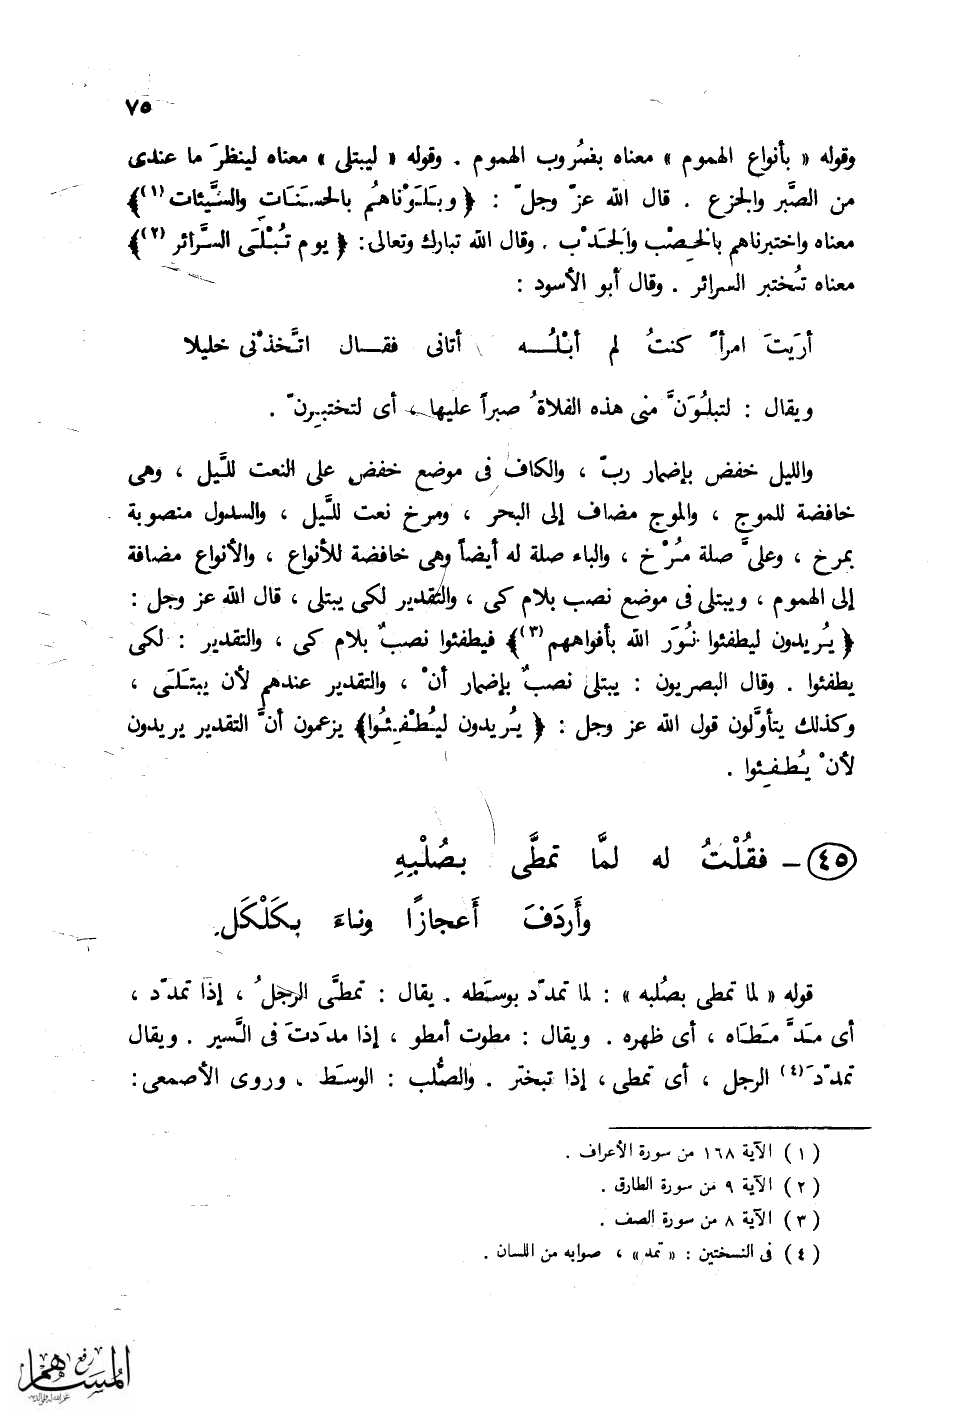 ٧٥
وقوله « بأنواع الهموم » معناه بضُروب الهموم . وقوله « ليبتلى » معناه لينظرَ ما عندى
من الصَّبر والجزع . قال الله عزّ وجلّ : ﴿ وبلَوْناهُم بالحسنَاتِ والسَّيِّئات (١)﴾
معناه واختبرناهم بالخِصْب والجَدْب . وقال الله تبارك وتعالى: ﴿ يوم تُبْلَى السَّرائر (٢)﴾
معناه تُختبر السرائر . وقال أبو الأسود :
أرَيتَ امرأً كنتُ لم أبْلُه أتانى فقال اتَّخذْنى خليلا
ويقال : لتبلُوَنَّ منى هذه الفلاةُ صبراً عليها ، أى لتختبرِنّ .
والليل خفض بإضمار ربّ ، والكاف فى موضع خفض على النعت للَّيل ، وهى
خافضة للموج ، والموج مضاف إلى البحر ، ومرخ نعت للَّيل ، والسدول منصوبة
بمرخ ، وعلىَّ صلة مُرْخ ، والباء صلة له أيضاً وهى خافضة للأنواع ، والأنواع مضافة
إلى الهموم ، ويبتلى فى موضع نصب بلام كى ، والتقدير لكى يبتلى ، قال الله عز وجل :
﴿ يُريدون ليطفئوا نُورَ الله بأفواههم (٣)﴾ فيطفئوا نصبٌ بلام كى ، والتقدير : لكى
يطفئوا . وقال البصريون : يبتلى نصبٌ بإضمار أنْ ، والتقدير عندهم لأن يبتَلَى ،
وكذلك يتأوَّلون قول الله عز وجل : ﴿ يُريدون ليُطْفِئُوا﴾ يزعمون أنَّ التقدير يريدون
لأنْ يُطفِئوا .
٤٥ – فقُلْتُ له لمَّا تمطَّى بصُلْبِهِ
وأَردَفَ أَعجازًا وناءَ بكَلْكَلِ
قوله « لما تمطى بصُلبه » : لما تمدّد بوسَطه . يقال : تمطَّى الرجلُ ، إذا تمدّد ،
أى مدَّ مَطَاه ، أى ظهره . ويقال : مطوت أمطو ، إذا مدَدتَ فى السَّير . ويقال
تمدّدَ (٤) الرجل ، أى تمطى ، إذا تبختر . والصُّلب : الوسَط . وروى الأصمعى :
( ١ ) الآية ١٦٨ من سورة الأعراف .
( ٢ ) الآية ٩ من سورة الطارق .
( ٣ ) الآية ٨ من سورة الصف .
( ٤ ) فى النسختين : « تمد » ، صوابه من اللسان .
رفع
المساهم